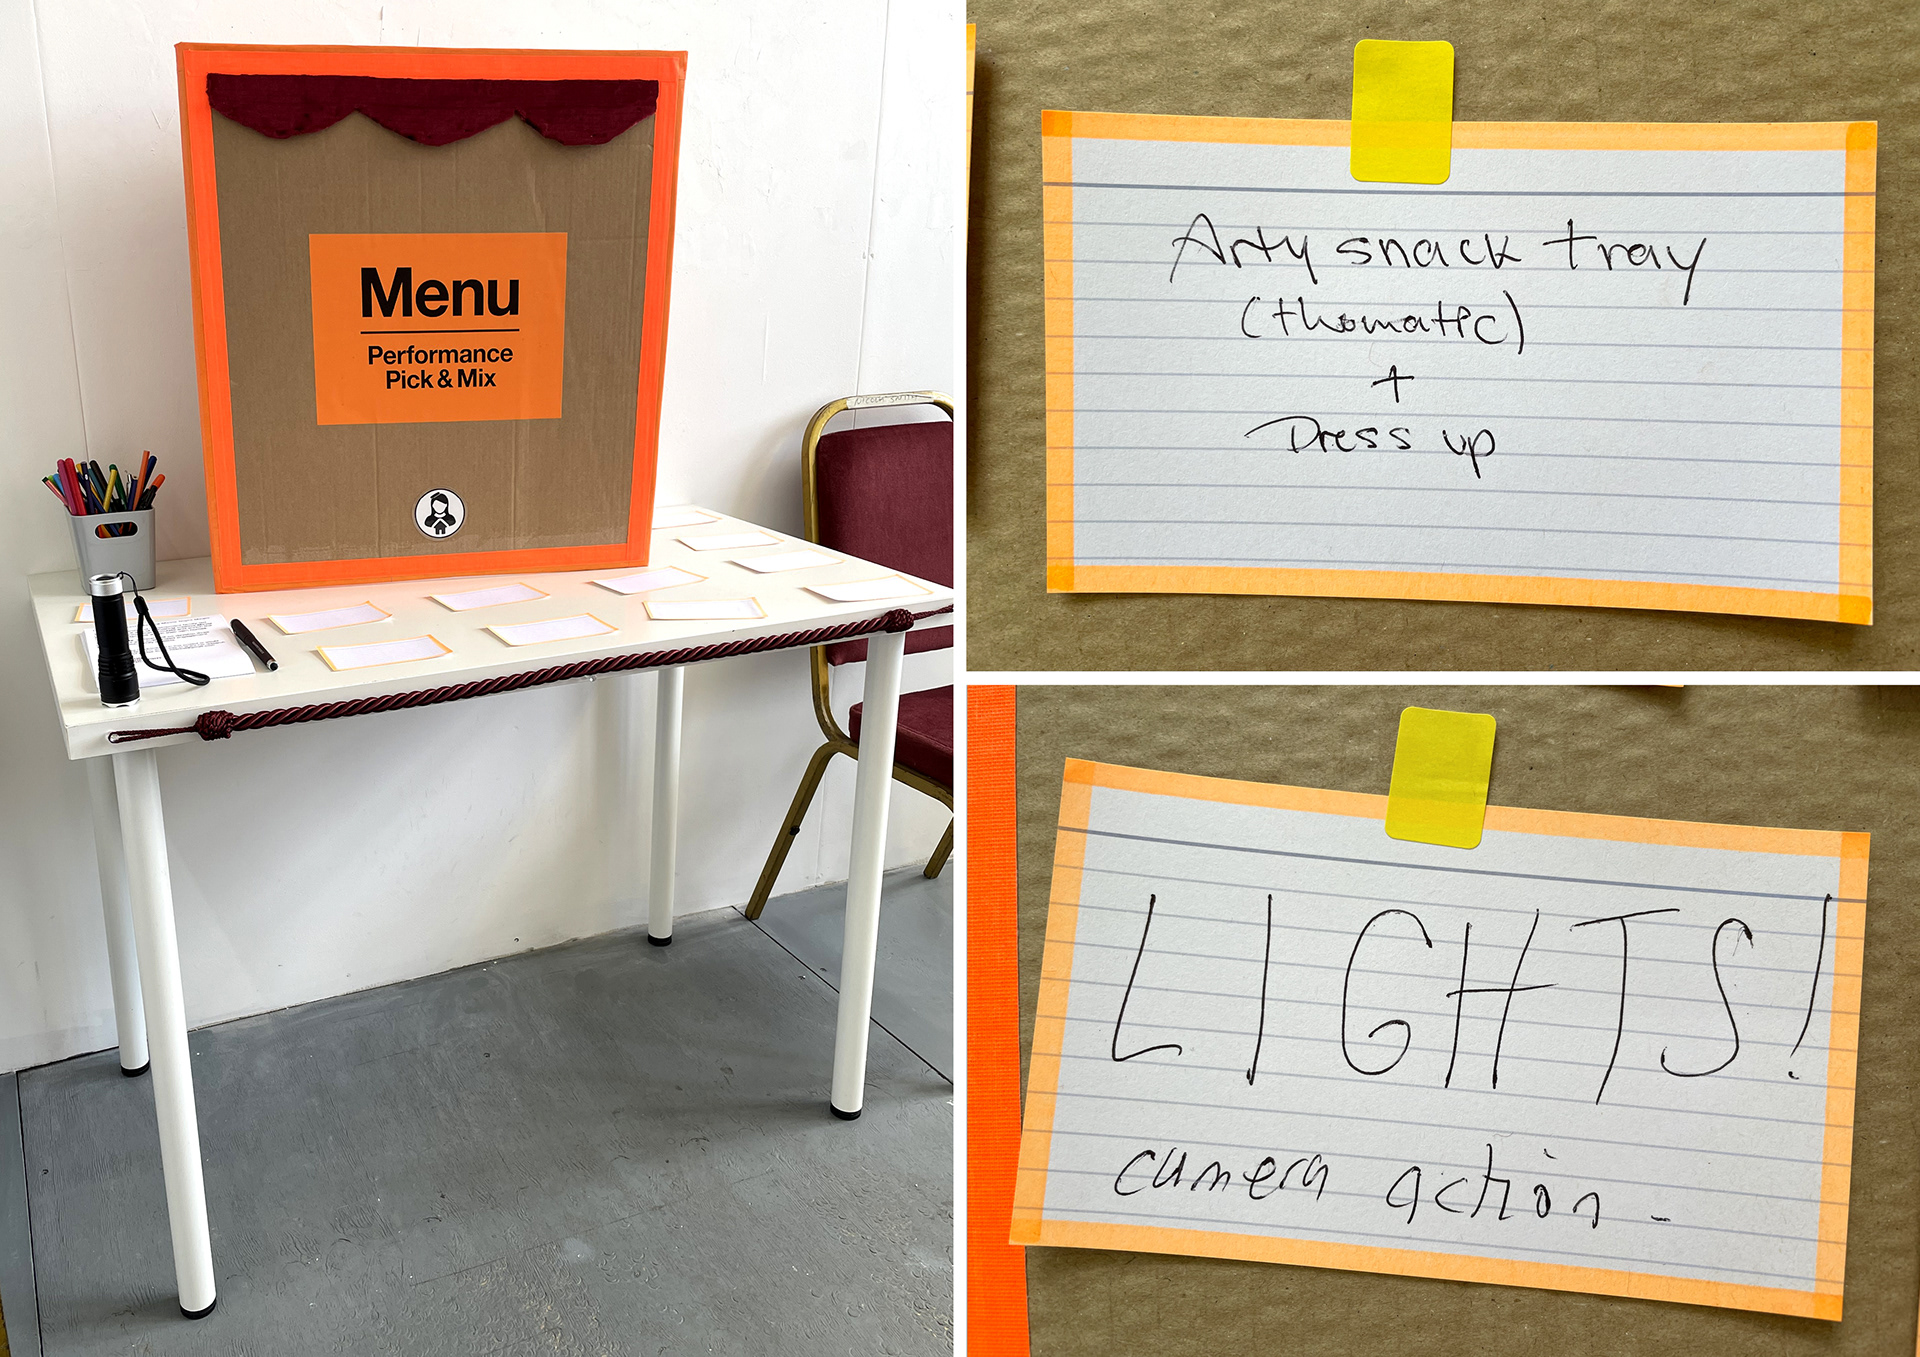 Menu
Performance
Pick & Mix
NICOLA SMITH
Arty snack tray
(thematic)
+
Dress up
LIGHTS!
camera action